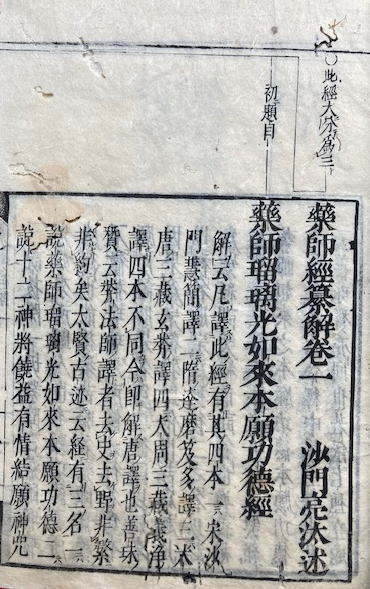 〇此經大分爲三
初題目
藥師經纂解卷一　沙門亮汰述
藥師瑠璃光如來本願功德經
解云凡譯此經有其四本一宋沙
門慧簡譯二隋達磨笈多譯三大
唐三藏玄奘譯四大周三藏義淨
譯四本不同今即解唐譯也善珠
賛云奘法師譯者去史去野非繁
非約矣太賢古迹云經有三名一
說藥師瑠璃光如來本願功德二
說十二神將饒益有情結願神咒